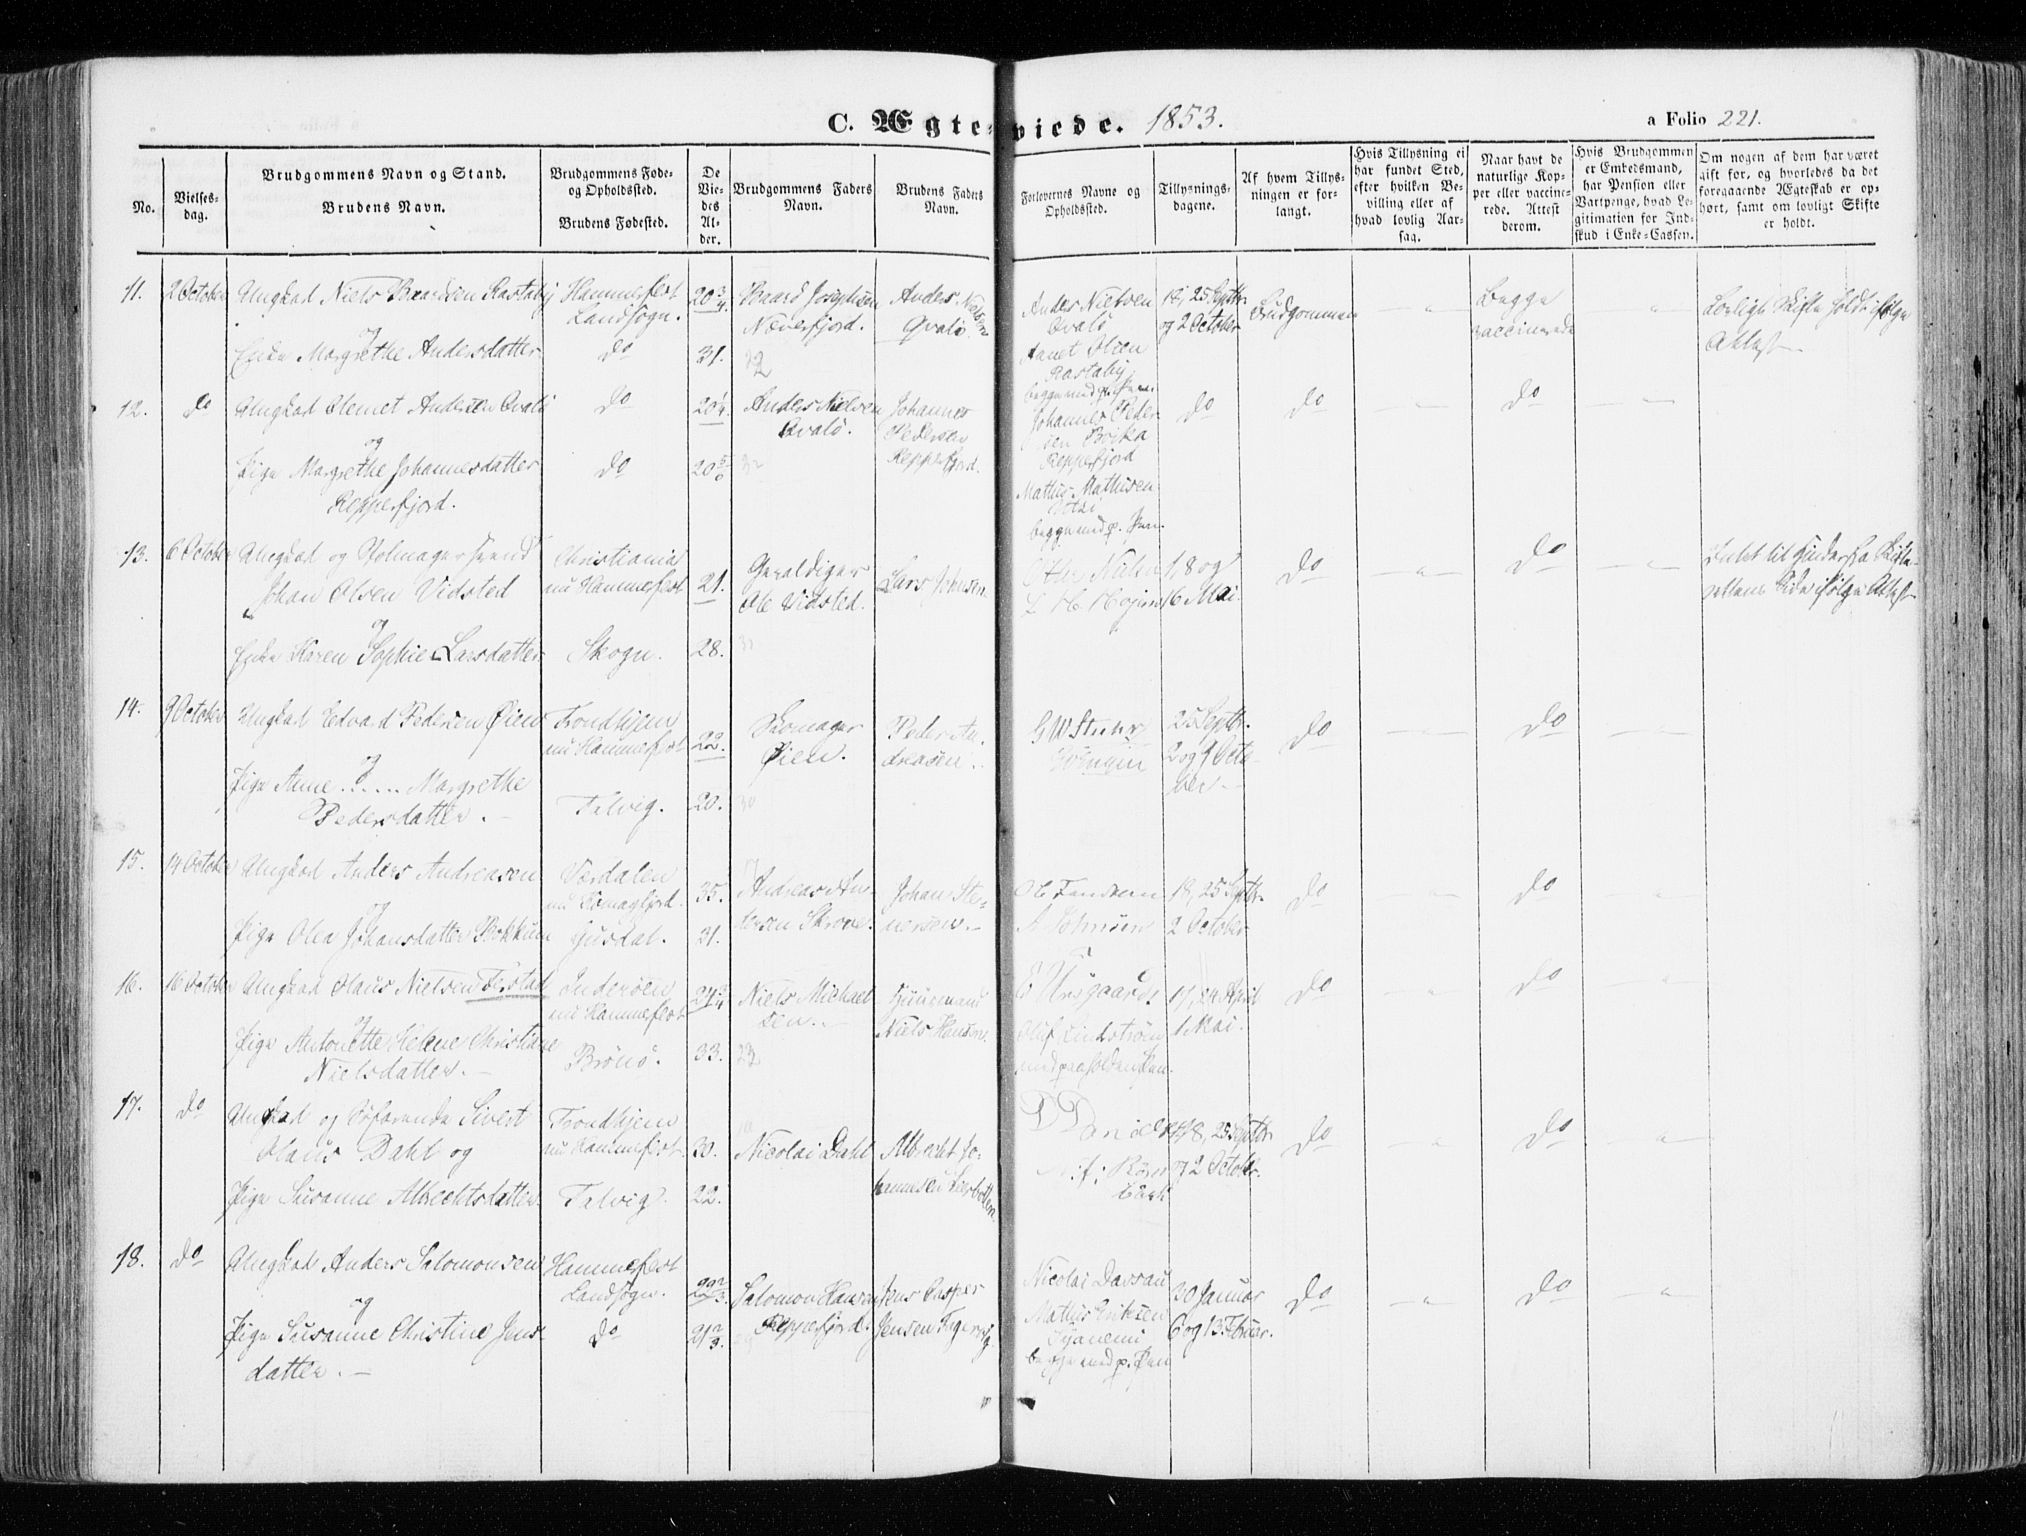 C. Ægte-viede. 1853.
a Folio 221.
No.
Vielses-
dag.
Brudgommens Navn og Stand.
Brudens Navn.
Brudgommens Føde-
og Opholdssted.
Brudens Fødested.
De
Vie-
des
Al-
der.
Brudgommens Faders
Navn.
Brudens Faders
Navn.
Forlovernes Navne og
Opholdssted.
Tillysnings-
dagene.
Af hvem Tillys-
ningen er for-
langt.
Hvis Tillysning ei
har fundet Sted,
efter hvilken Be-
villing eller af
hvad lovlig Aar-
sag.
Naar havt de
naturlige Kop-
per eller vaccine-
rede. Attest
derom.
Hvis Brudgommen
er Enkedsmand,
har Pension eller
Vartpenge, hvad Le-
gitimation for Ind-
skud i Enke-Cassen.
Om nogen af dem har været
gift før, og hvorledes da det
foregaaende Ægteskab er op-
hørt, samt om lovligt Skifte
er holdt.
11. 2 October Ungkarl Niels Baardsen Rastaby
og
Enke Margrethe Andersdatter
Hammerfest
Landsogn.
do
20 3/4
31.
Baard Josephsen
Næverfjord.
Anders Nielsen
Qvalö
Anders Nielsen
Qvalö
Olsen
Rastaby
begge med p. Pen.
18, 25 Septbr
og 2 October
Brudgommen
Begge
vaccinerede
Lovligt Skifte holdt ifølge
Attest
12. do Ungkarl Clemet Andersen Qvalö
og
Pige Margrethe Johannesdatter
Repperfjord.
do
do
20 1/4
Anders Nielsen
Qvalö.
Johannes
Pedersen
Repperfjord.
Johannes Peder-
sen
Repperfjord
Mathis Mathisen
begge med p. Pen.
do
do
do
13. 6 October Ungkarl og
Johan Olsen Vidsted
og
Enke Karen Sophie Larsdatter
Christiania
nu Hammerfest
Skogn.
21.
28.
Ole Vidsted.
Lars Johnsen.
1, 8 og
16 Mai.
do
do
Intet til Hinder fra Skifte-
rettens Side ifølge Attest
14. 9 October Ungkarl Edvard Pedersen Øien
og
Pige Anne ...... Margrethe
Pedersdatter.
Trondhjem
nu Hammerfest
Talvig.
22.
20.
Skomager
Øien.
Peder An-
dreasen.
25 Septbr.
2 og 9 Octo-
ber
do
do
15. 14 October Ungkarl Anders Andreasen
og
Pige Olea Johansdatter Bakkum
Værdalen
nu Komagfjord.
35.
31.
Andreas An-
dersen Skrove.
Johan Ste-
nersen.
A Johnsen
18, 25 Septbr.
2 October
do
do
16. 16 October Ungkarl Olaus Nielsen
og
Pige Antonette Helene Christiane
Nielsdatter.
Inderöen
nu Hammerfest
Brönö.
24 3/4
33.
Niels Michael
sen.
Huusmand
Niels Hansen.
Oluf Lindström
17, 24 April
1 Mai.
do
do
17. do Ungkarl og Söfarende Sivert
Olaus Dahl og
Pige Susanne Albrechtsdatter.
Trondhjem
nu Hammerfest
Talvig.
30.
22.
Nicolai Dahl
Albrecht Jo-
hannesen Leerbotten.
18, 25 Septbr
og 2 October.
do
do
18. do Ungkarl Anders Salomonsen
og
Pige Susanne Christine Jens
datter.
Hammerfest
Landsogn.
do
22 2/3.
21 2/3.
Salomon Hansen
Repperfjord.
Jens Casper
Jensen
Nicolai Dassau
Mathis Eriksen
begge med p. Pen
30 Januar
6 og 13 Februar.
do
do